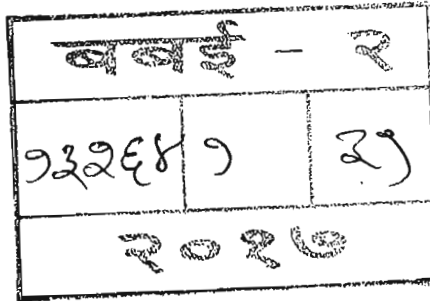 बबई - २
१३२६४ १ ३१
२०१७